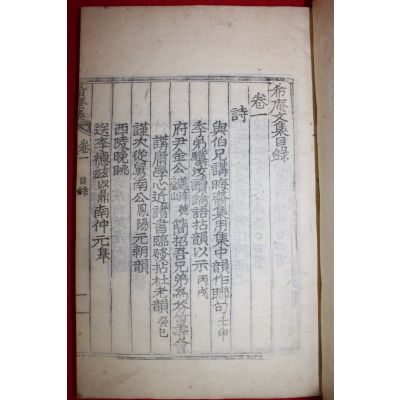 希庵文集目錄
卷一
詩
與伯兄講晦齋集用集中韻作聯句壬申
季弟驥汝讀論語拈韻以示丙戌
府尹金公簡招吾兄弟爲
講磨學心近諸書臨發拈杜老韻癸巳
謹次從舅南公鳳陽元朝韻
西陵晚眺
送李德鉉以鼎南仲元集
卷一
目錄
一